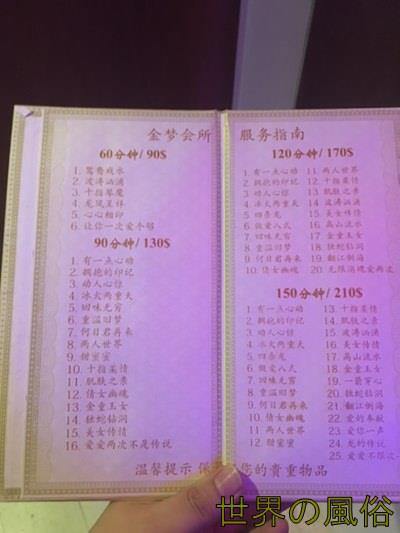 金梦会所
60分钟/90$
1. 鸳鸯戏水
2. 波涛汹涌
3. 十指琴魔
4. 龙凤呈祥
5. 心心相印
6. 让你一次爱个够
90分钟/130$
1. 有一点心动
2. 拥抱的印记
3. 动人心惊
4. 冰火两重天
5. 回味无穷
6. 重温旧梦
7. 何日君再来
8. 两人世界
9. 甜蜜蜜
10. 十指柔情
11. 肌肤之亲
12. 倩女幽魂
13. 金童玉女
14. 毒蛇钻洞
15. 美女传情
16. 爱爱两次不是传说
服务指南
120分钟/170$
1. 有一点心动
2. 拥抱的印记
3. 动人心惊
4. 冰火两重天
5. 四条龙
6. 做爱八式
7. 回味无穷
8. 重温旧梦
9. 何日君再来
10. 倩女幽魂
11. 两人世界
12. 十指柔情
13. 肌肤之亲
14. 波涛汹涌
15. 美女传情
16. 高山流水
17. 金童玉女
18. 毒蛇钻洞
19. 翻江倒海
20. 无限浪漫爱两次
150分钟/210$
1. 有一点心动
2. 拥抱的印记
3. 动人心惊
4. 冰火两重天
5. 四条龙
6. 做爱八式
7. 回味无穷
8. 重温旧梦
9. 何日君再来
10. 倩女幽魂
11. 两人世界
12. 甜蜜蜜
13. 十指柔情
14. 肌肤之亲
15. 波涛汹涌
16. 美女传情
17. 高山流水
18. 金童玉女
19. 一箭穿心
20. 毒蛇钻洞
21. 翻江倒海
22. 爱的奉献
23. 爱你一点
24. 龙的传说
25. 爱爱不限次
温馨提示 保 您的貴重物品
世界の風俗